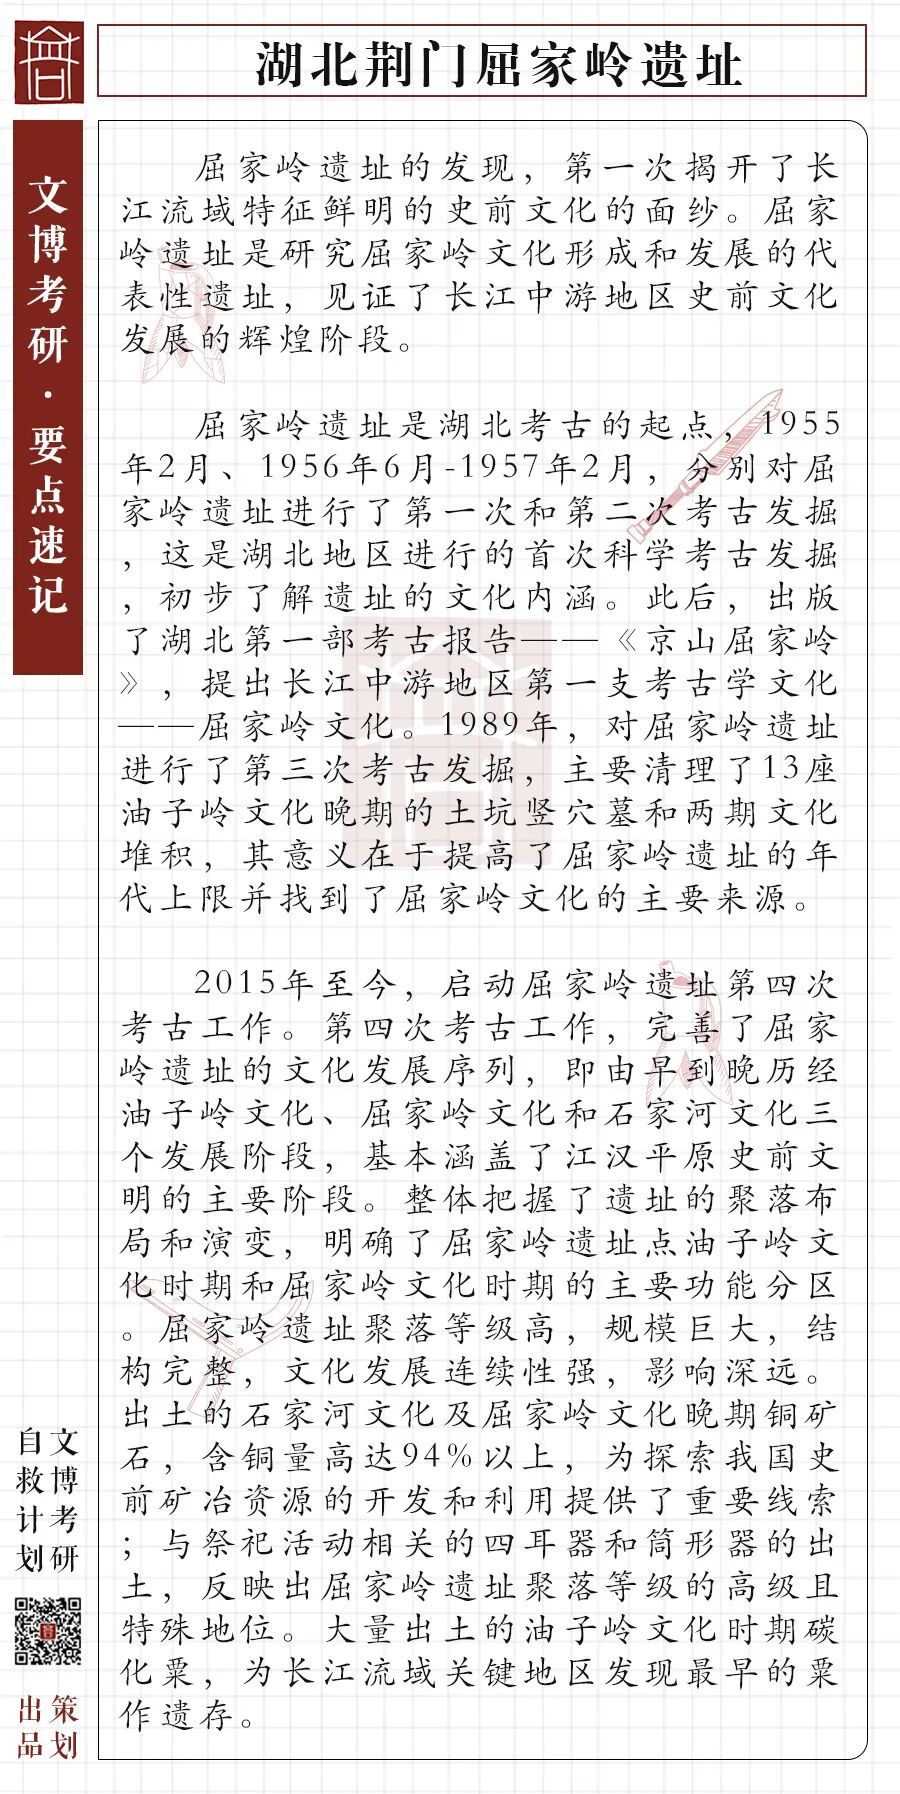 湖北荆门屈家岭遗址
文博考研·要点速记
屈家岭遗址的发现，第一次揭开了长
江流域特征鲜明的史前文化的面纱。屈家
岭遗址是研究屈家岭文化形成和发展的代
表性遗址，见证了长江中游地区史前文化
发展的辉煌阶段。
屈家岭遗址是湖北考古的起点，1955
年2月、1956年6月-1957年2月，分别对屈
家岭遗址进行了第一次和第二次考古发掘
，这是湖北地区进行的首次科学考古发掘
，初步了解遗址的文化内涵。此后，出版
了湖北第一部考古报告——《京山屈家岭
》，提出长江中游地区第一支考古学文化
——屈家岭文化。1989年，对屈家岭遗址
进行了第三次考古发掘，主要清理了13座
油子岭文化晚期的土坑竖穴墓和两期文化
堆积，其意义在于提高了屈家岭遗址的年
代上限并找到了屈家岭文化的主要来源。
2015年至今，启动屈家岭遗址第四次
考古工作。第四次考古工作，完善了屈家
岭遗址的文化发展序列，即由早到晚历经
油子岭文化、屈家岭文化和石家河文化三
个发展阶段，基本涵盖了江汉平原史前文
明的主要阶段。整体把握了遗址的聚落布
局和演变，明确了屈家岭遗址点油子岭文
化时期和屈家岭文化时期的主要功能分区
。屈家岭遗址聚落等级高，规模巨大，结
构完整，文化发展连续性强，影响深远。
出土的石家河文化及屈家岭文化晚期铜矿
石，含铜量高达94%以上，为探索我国史
前矿冶资源的开发和利用提供了重要线索
；与祭祀活动相关的四耳器和筒形器的出
土，反映出屈家岭遗址聚落等级的高级且
特殊地位。大量出土的油子岭文化时期碳
化粟，为长江流域关键地区发现最早的粟
作遗存。
文博考研
自救计划
策划
出品